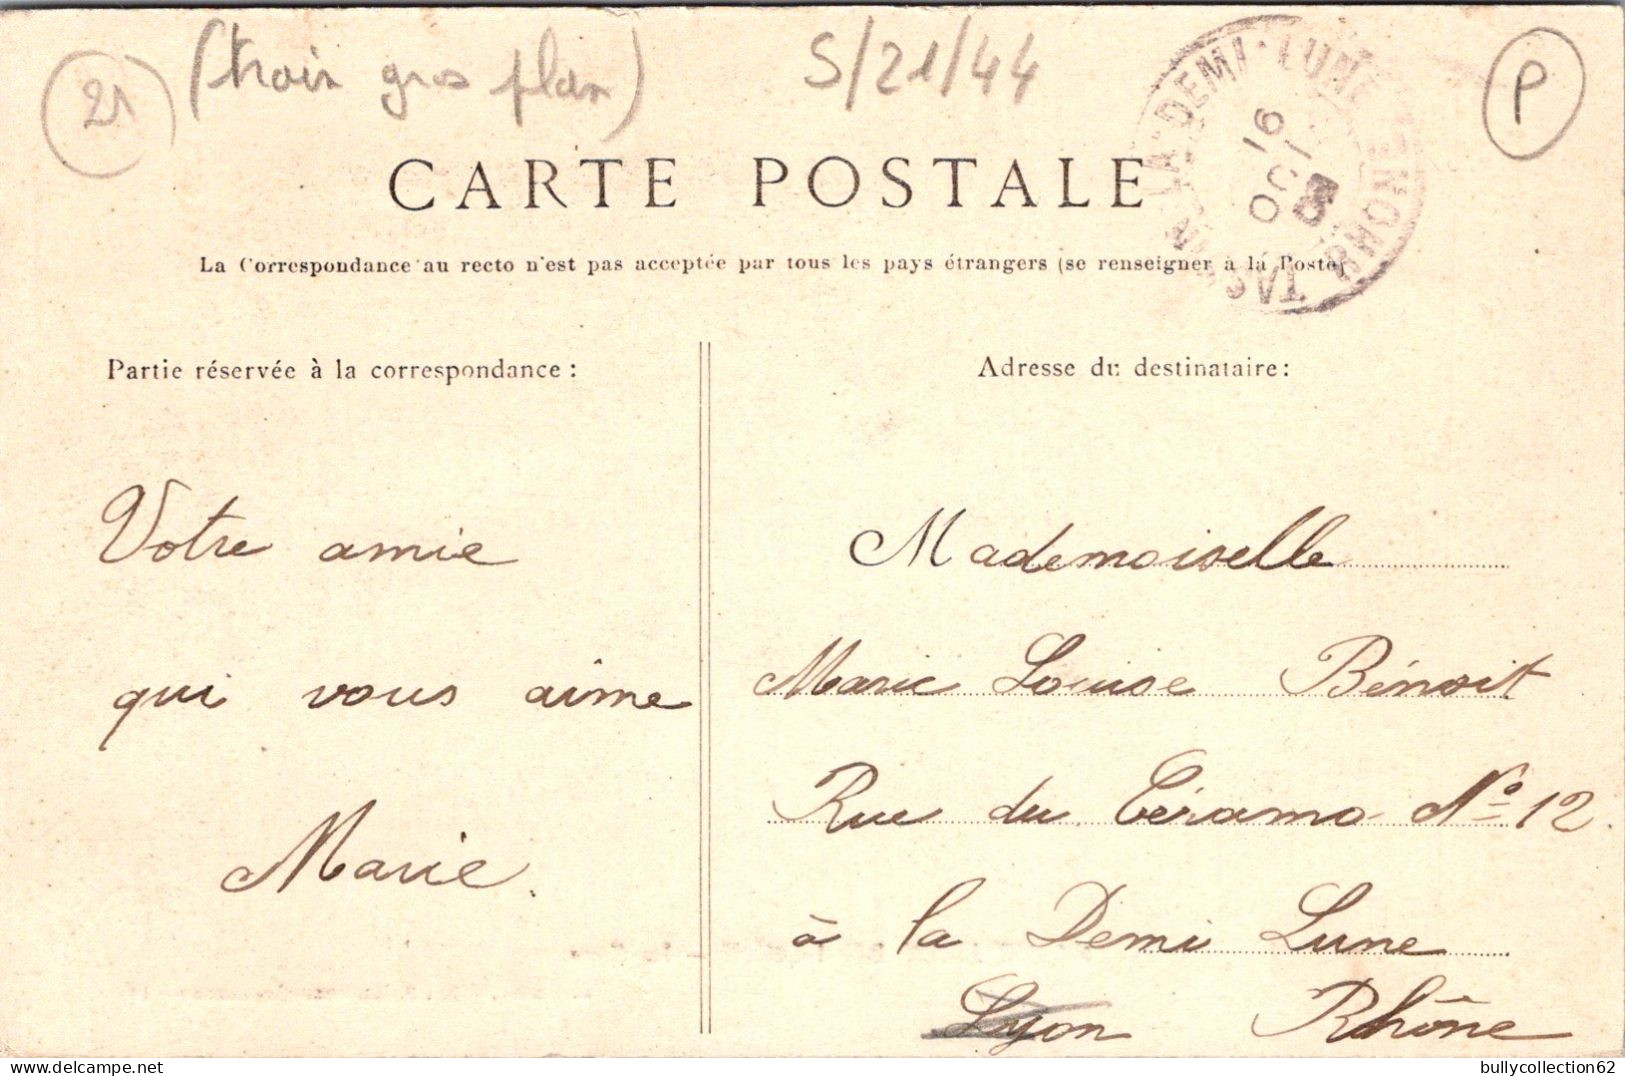 21
(train gros plan)
S/21/44
P
TASSIN LA DEMI-LUNE RHONE
16
OCT
CARTE POSTALE
La Correspondance au recto n'est pas acceptée par tous les pays étrangers (se renseigner à la Poste)
Partie réservée à la correspondance :
Votre amie
qui vous aime
Marie.
Adresse du destinataire:
Mademoiselle
Marie Louise Bénoit
Rue du Céramo Nº 12.
à la Demi Lune
Lyon Rhône
www.delcampe.net
bullycollection62